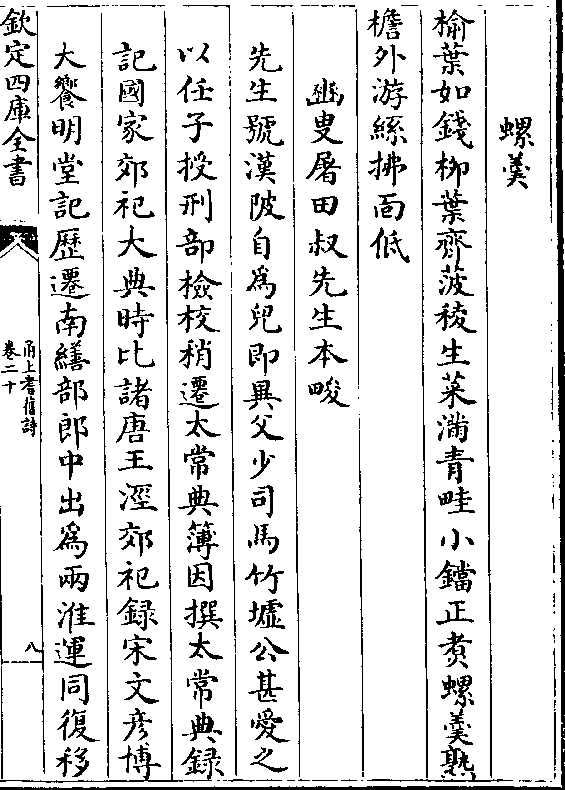 螺羮
榆葉如錢柳葉齊菠稜生菜滿青畦小鐺正煮螺羮熟
檐外游絲拂面低
豳叟屠田叔先生本畯
先生號漢陂自為兒即異父少司馬竹墟公甚愛之
以任子授刑部檢校稍遷太常典簿因撰太常典録
記國家郊祀大典時比諸唐王涇郊祀録宋文彦博
大饗明堂記歴遷南繕部郎中出為兩淮運同復移
欽定四庫全書
甬上耆舊詩
卷二十
八